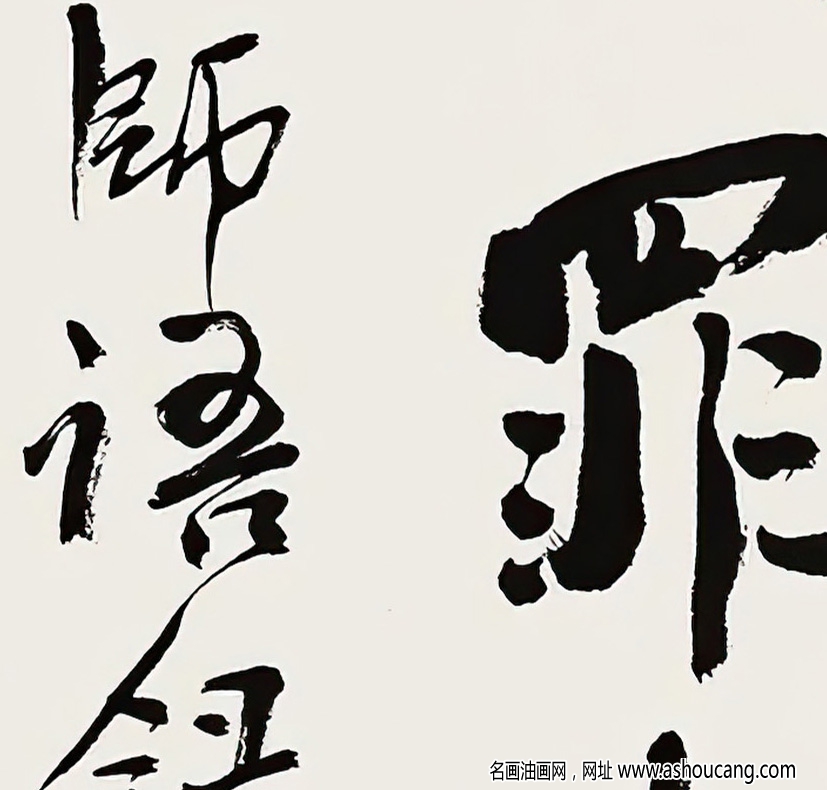 罪
師語錄
名画油画网，网址 www.ashoucang.com